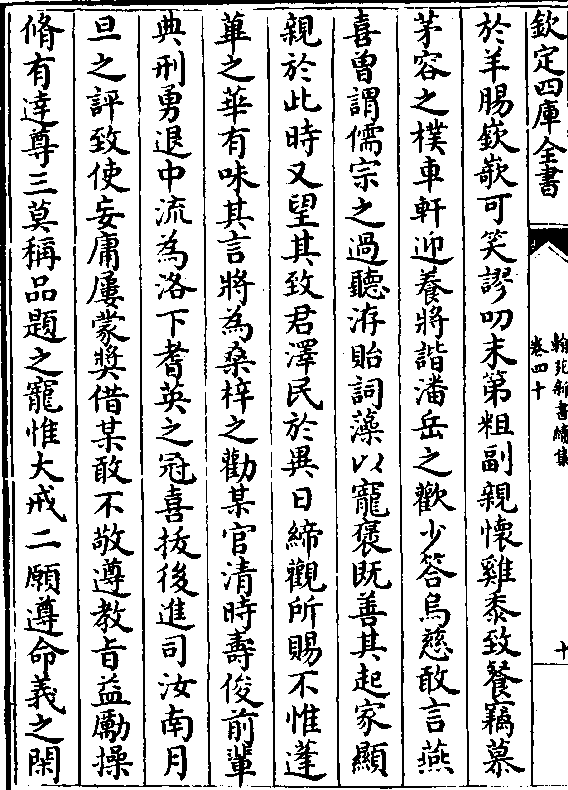 欽定四庫全書
翰苑新書續集
卷四十
十
於羊腸嶔嶔可笑謬叨末第粗副親懐雞黍致餐竊慕
茅容之樸車軒迎養將諧潘岳之歡少答烏慈敢言燕
喜曽謂儒宗之過聽洊貽詞藻以寵褒既善其起家顯
親於此時又望其致君澤民於異日締觀所賜不惟蓬
蓽之華有味其言將為桑梓之勸某官清時壽俊前輩
典刑勇退中流為洛下耆英之冠喜抜後進司汝南月
旦之評致使妄庸屢蒙奬借某敢不敬遵教㫖益勵操
脩有逹尊三莫稱品題之寵惟大戒二願遵命義之閑